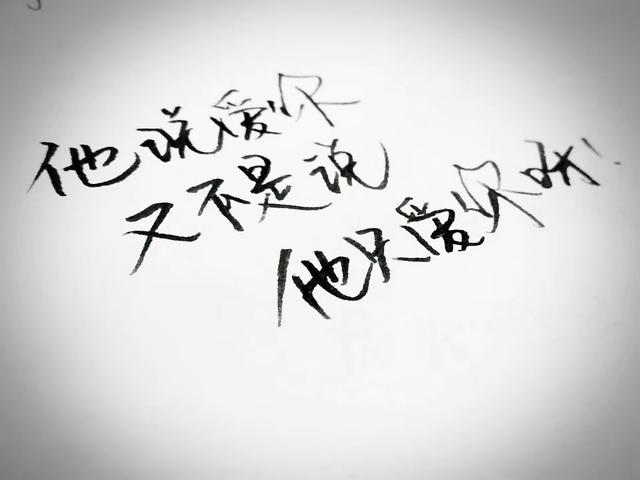 他说爱你
又不是说
他只爱你呀!